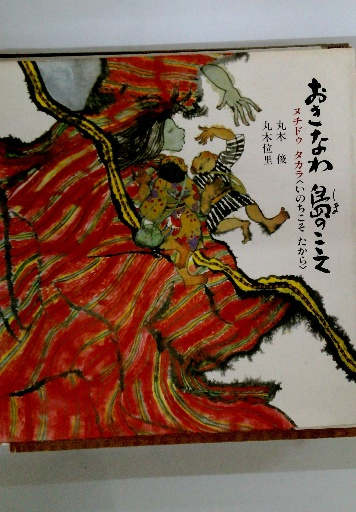 おきなわ 島のこえ
しま
ヌチドゥ タカラ〈いのちこそ たから〉
丸木 俊
丸木位里